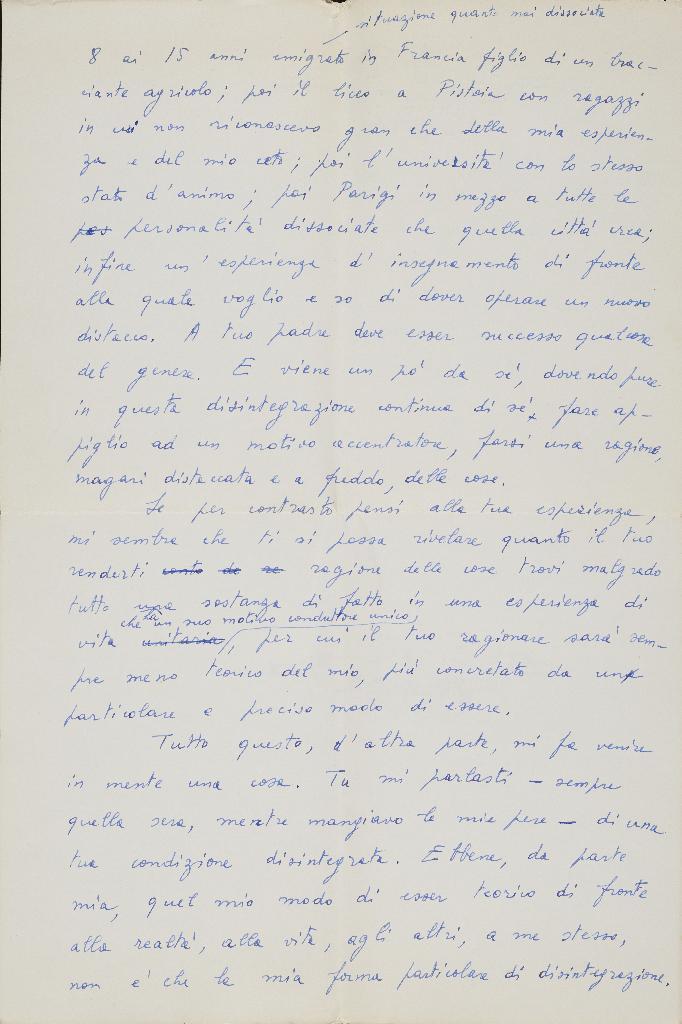 situazione quanto mai dissociata
8 ai 15 anni emigrato in Francia figlio di un brac-
ciante agricolo; poi il liceo a Pistoia con ragazzi
in cui non riconoscevo gran che della mia esperien-
za e del mio ceto; poi l'università con lo stesso
stato d'animo; poi Parigi in mezzo a tutte le
pes personalità dissociate che quella città crea;
infine un'esperienza d'insegnamento di fronte
alla quale voglio e so di dover operare un nuovo
distacco. A tuo padre deve esser successo qualcosa
del genere. E viene un po' da sé, dovendo pure
in questa disintegrazione continua di sé, fare ap-
piglio ad un motivo accentratore, farsi una ragione,
magari distaccata e a freddo, delle cose.
Se per contrasto pensi alla tua esperienza,
mi sembra che ti si possa rivelare quanto il tuo
renderti conto de se ragione delle cose trovi malgrado
tutto una sostanza di fatto in una esperienza di
che ha un suo motivo conduttore unico,
vita unitaria, per cui il tuo ragionare sarà sem-
pre meno teorico del mio, più concretato da un
particolare e preciso modo di essere.
Tutto questo, d'altra parte, mi fa venire
in mente una cosa. Tu mi parlasti – sempre
quella sera, mentre mangiavo le mie pere – di una
tua condizione disintegrata. Ebbene, da parte
mia, quel mio modo di esser teorico di fronte
alla realtà, alla vita, agli altri, a me stesso,
non e' che la mia forma particolare di disintegrazione.